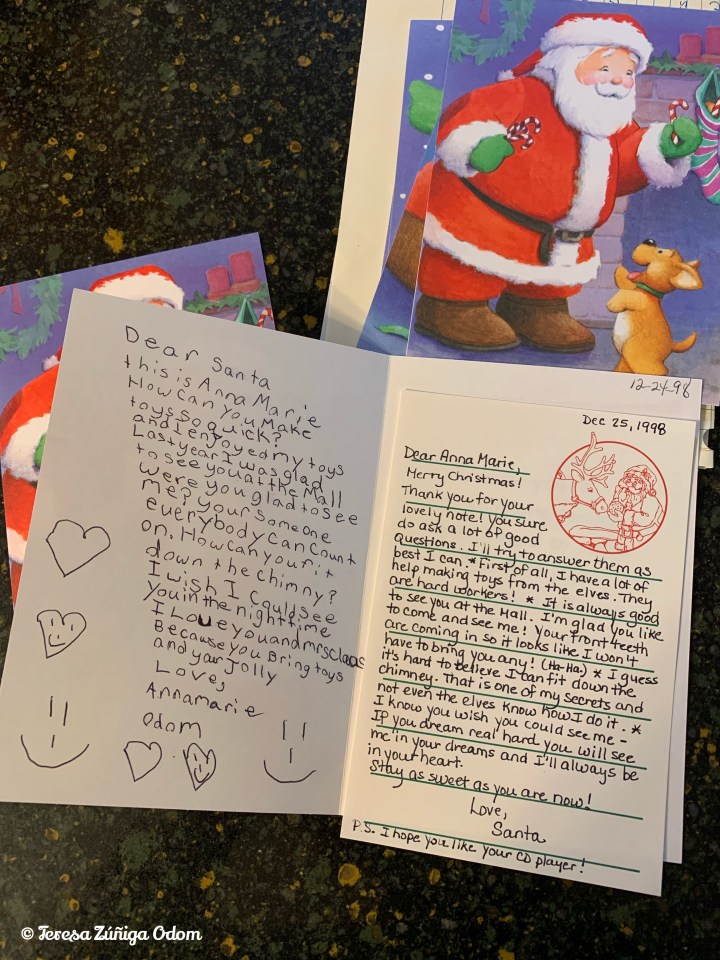 Dear Santa
this is Anna Marie
How can you Make
toys so quick?
and I enjoyed my toys
Last year I was glad
to see you at the Mall
were you glad to see
me? your someone
everybody can count
on. How can you fit
down the chimny?
I wish I could see
you in the nighttime
I Love you and mrs claas
Because you Bring toys
and your Jolly
Love,
Annamarie
Odom
12-24-98
Dec 25, 1998
Dear Anna Marie,
Merry Christmas!
Thank you for your
lovely note! You sure
do ask a lot of good
questions. I'll try to answer them as
best I can * First of all, I have a lot of
help making toys from the elves. They
are hard workers! * It is always good
to see you at the Mall. I'm glad you like
to come and see me! Your front teeth
are coming in so it looks like I won't
have to bring you any! (Ha-Ha) * I guess
it's hard to believe I can fit down the
chimney. That is one of my secrets and
not even the elves know how I do it. *
I know you wish you could see me -
If you dream real hard you will see
me in your dreams and I'll always be
in your heart.
Stay as sweet as you are now!
Love,
Santa
P.S. I hope you like your CD player!
© Teresa Zúñiga Odom